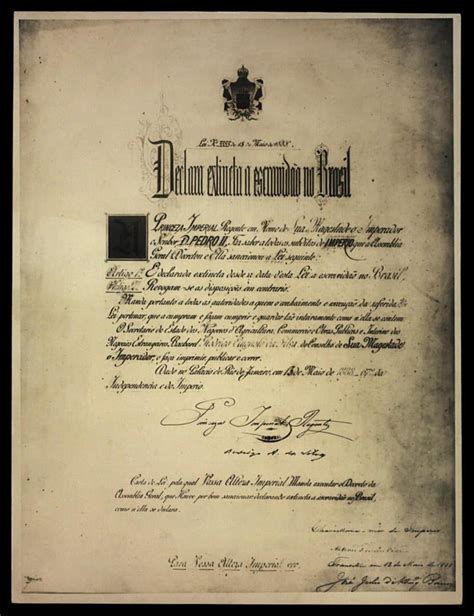 Lei Nº 3353 de 13 de Maio de 1888.
Declara extincta a escravidão no Brasil
A PRINCEZA IMPERIAL Regente em Nome de Sua Magestade o Imperador
o Senhor D. PEDRO II, Faz saber a todos os subditos do IMPERIO que a Assembléa
Geral Decretou e Ella sanccionou a Lei seguinte:
Artigo 1º É declarada extincta desde a data d'esta Lei a escravidão no Brasil
Artigo 2º Revogam-se as disposições em contrario.
Manda portanto a todas as autoridades a quem o conhecimento e execução da referida
Lei pertencer, que a cumpram e façam cumprir e guardar tão inteiramente como n'ella se contem.
O Secretario de Estado dos Negocios d'Agricultura, Commercio e Obras Publicas e Interino dos
Negocios Estrangeiros, Bacharel Rodrigo Augusto da Silva do Conselho de Sua Magestade
o Imperador, o faça imprimir, publicar e correr.
Dado no Palacio do Rio de Janeiro, em 13 de Maio de 1888 - 67º da
Independencia e do Imperio.
Princeza Imperial Regente
Rodrigo A. da Silva
Carta de Lei, pela qual Vossa Alteza Imperial Manda executar o Decreto da
Assembléa Geral, que Houve por bem sanccionar declarando extincta a escravidão no Brasil,
como n'ella se declara.
Para Vossa Alteza Imperial ver.
Chancellaria-mór do Imperio
Transitou em 13 de Maio de 1888
José Julio d'Albuqº Barros